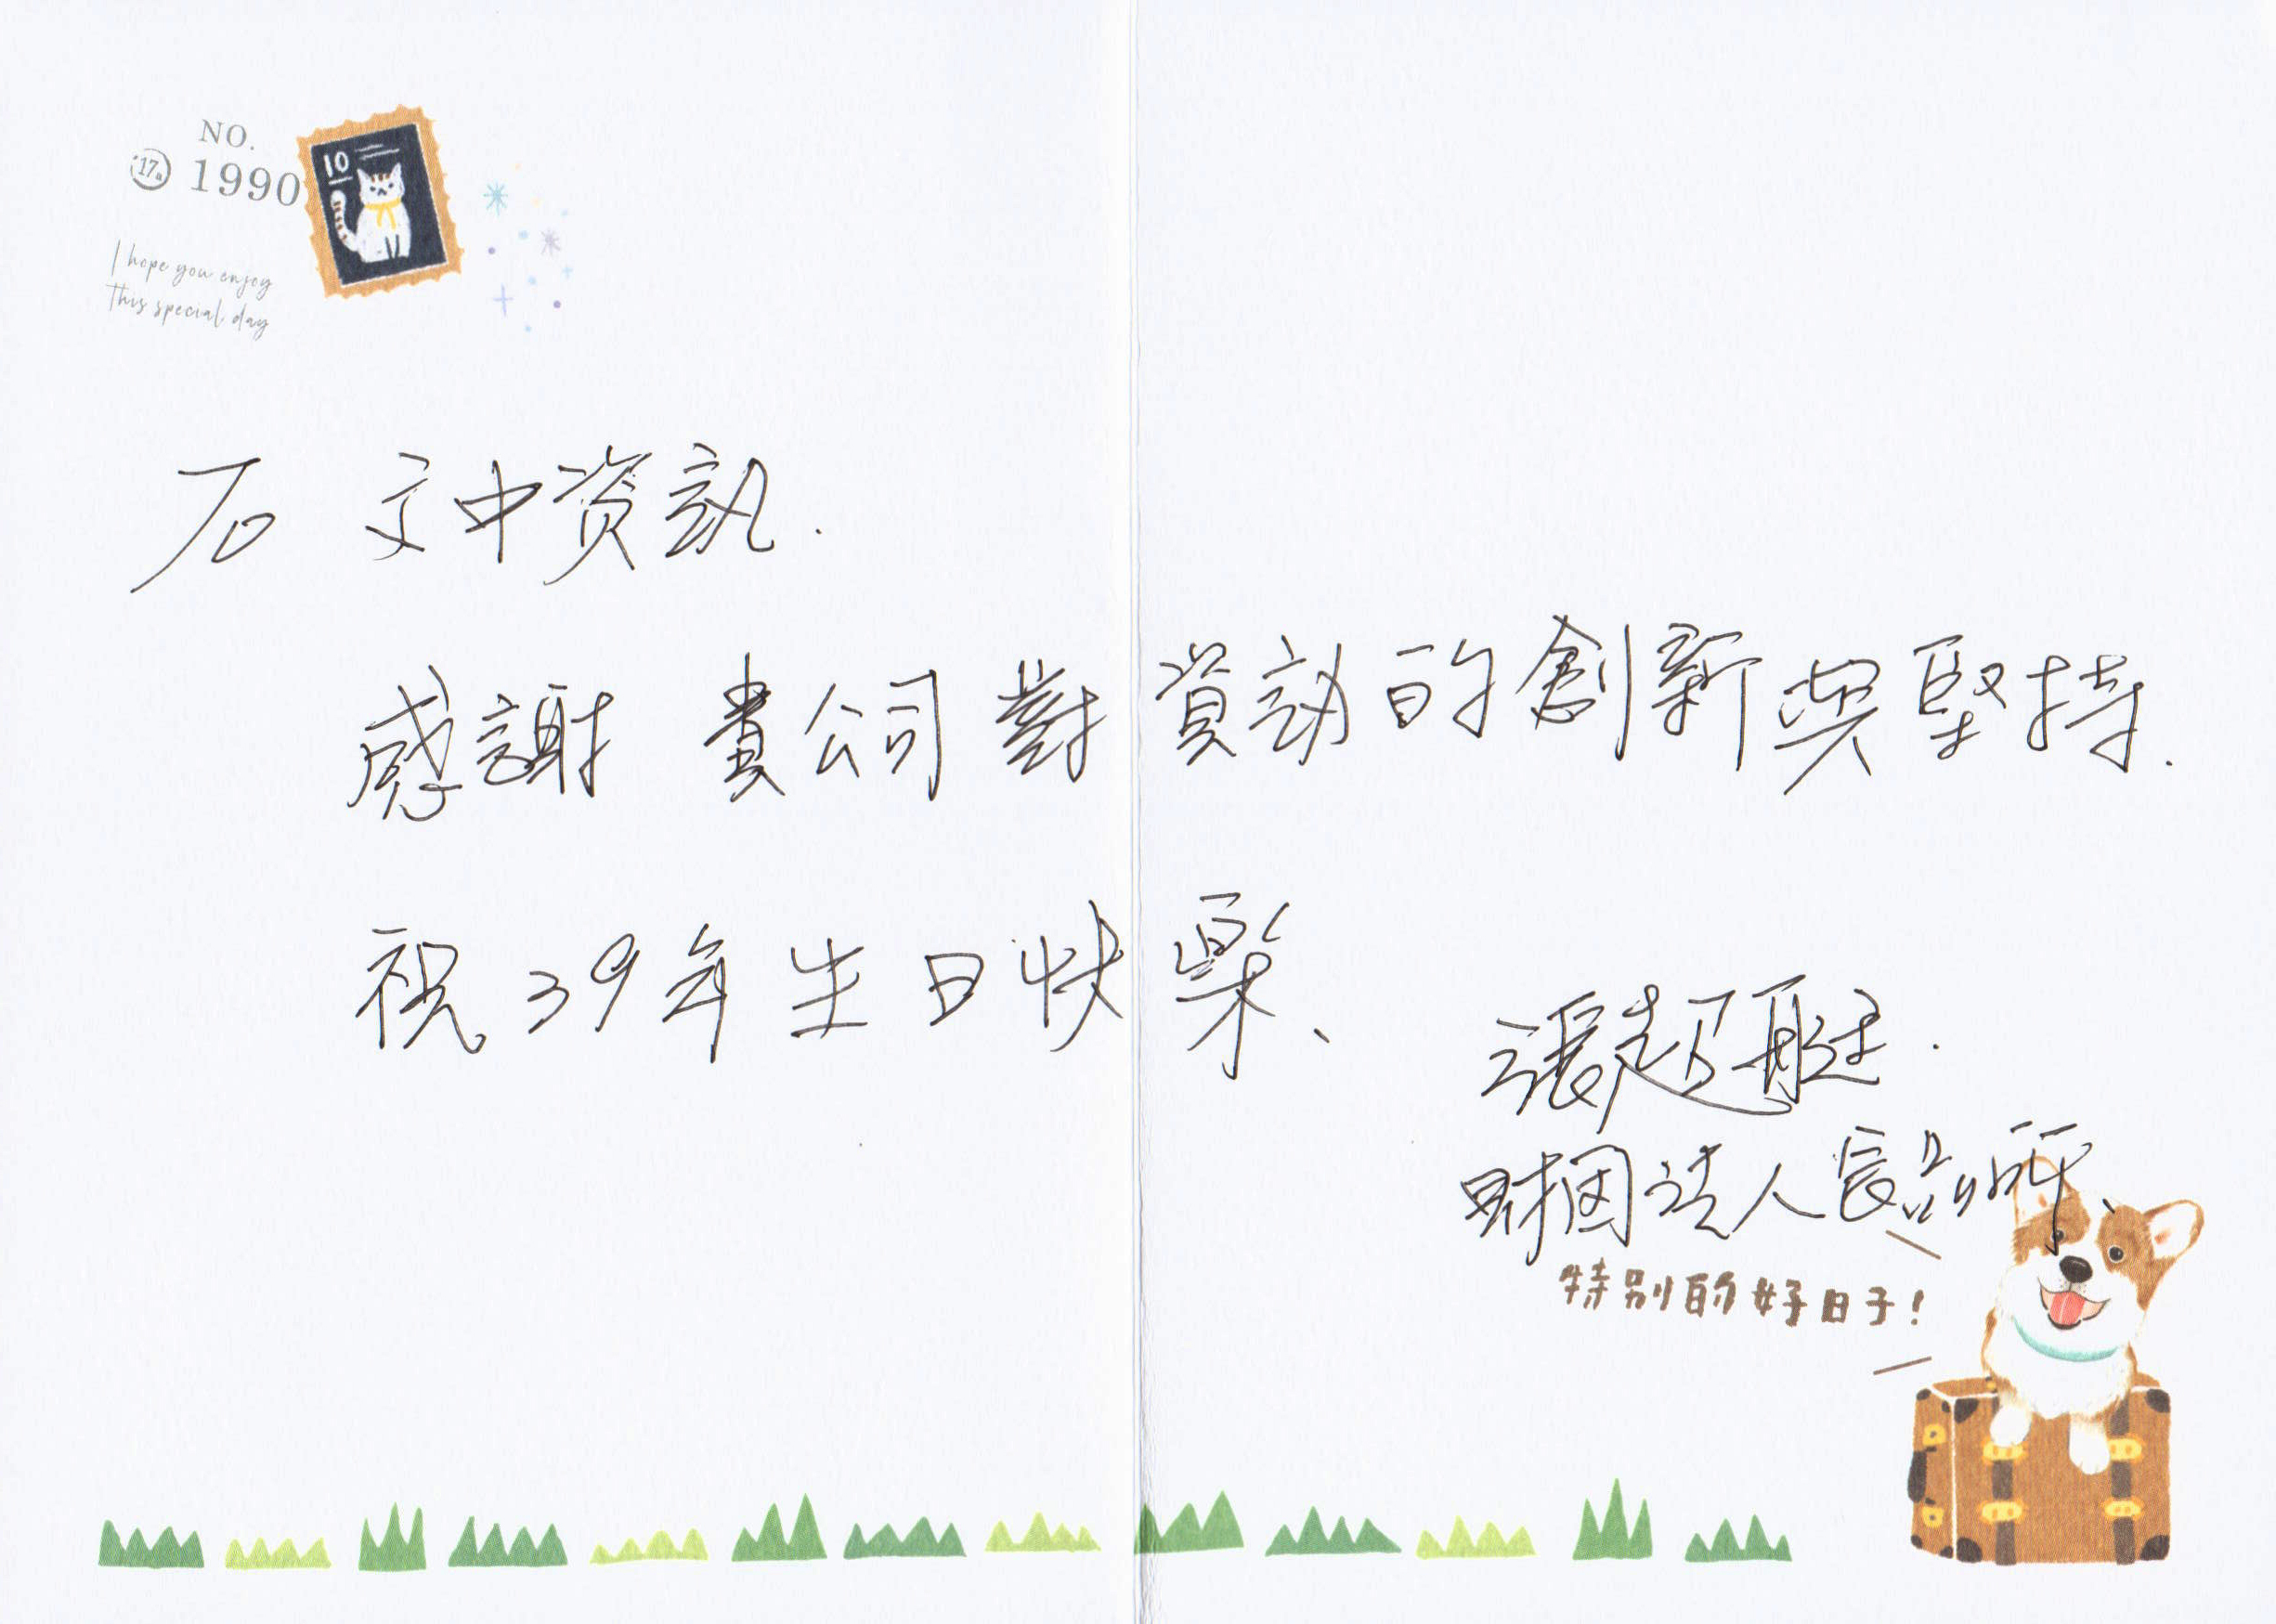 NO.
17 1990
10
I hope you enjoy
This special day
石 文中資訊.
感謝 貴公司對資訊的創新與堅持.
祝39年生日快樂、
張超
財團法人食品所、
特別的好日子!